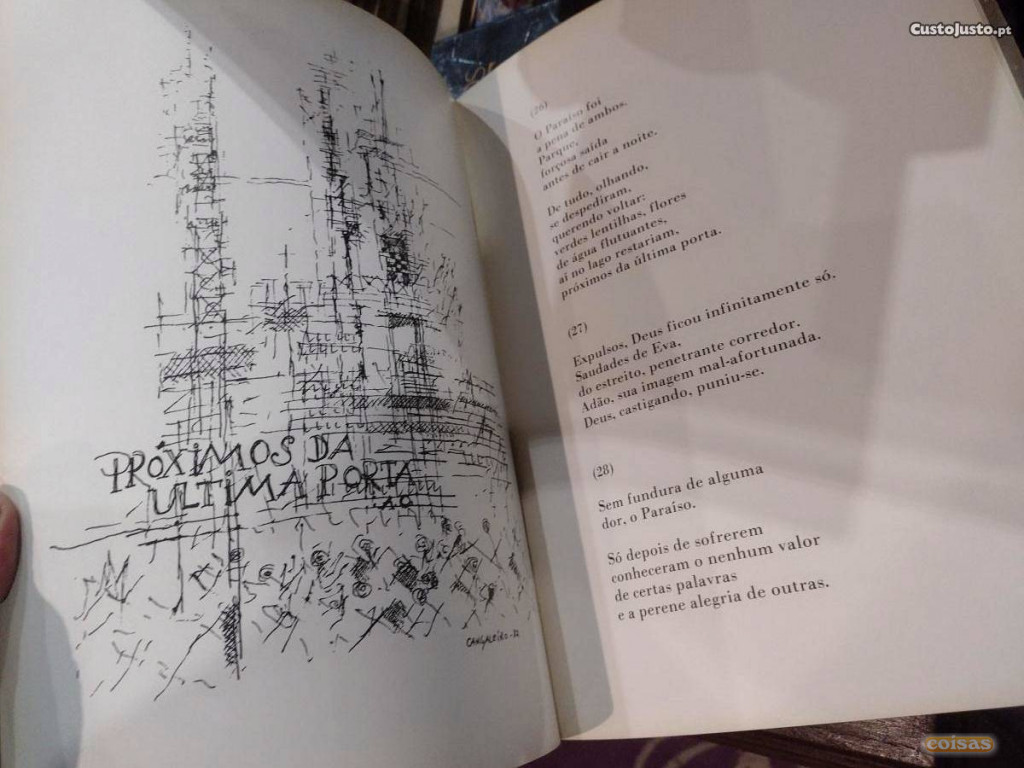 CustoJusto.pt
PRÓXIMOS DA
ULTIMA PORTA
(26)
O Paraíso foi
a pena de ambos.
Parque,
forçosa saída
antes de cair a noite.
De tudo, olhando,
se despediram,
querendo voltar:
verdes lentilhas, flores
de água flutuantes,
aí no lago restariam,
próximos da última porta.
(27)
Expulsos, Deus ficou infinitamente só.
Saudades de Eva.
do estreito, penetrante corredor.
Adão, sua imagem mal-afortunada.
Deus, castigando, puniu-se.
(28)
Sem fundura de alguma
dor, o Paraíso.
Só depois de sofrerem
conheceram o nenhum valor
de certas palavras
e a perene alegria de outras.
coisas